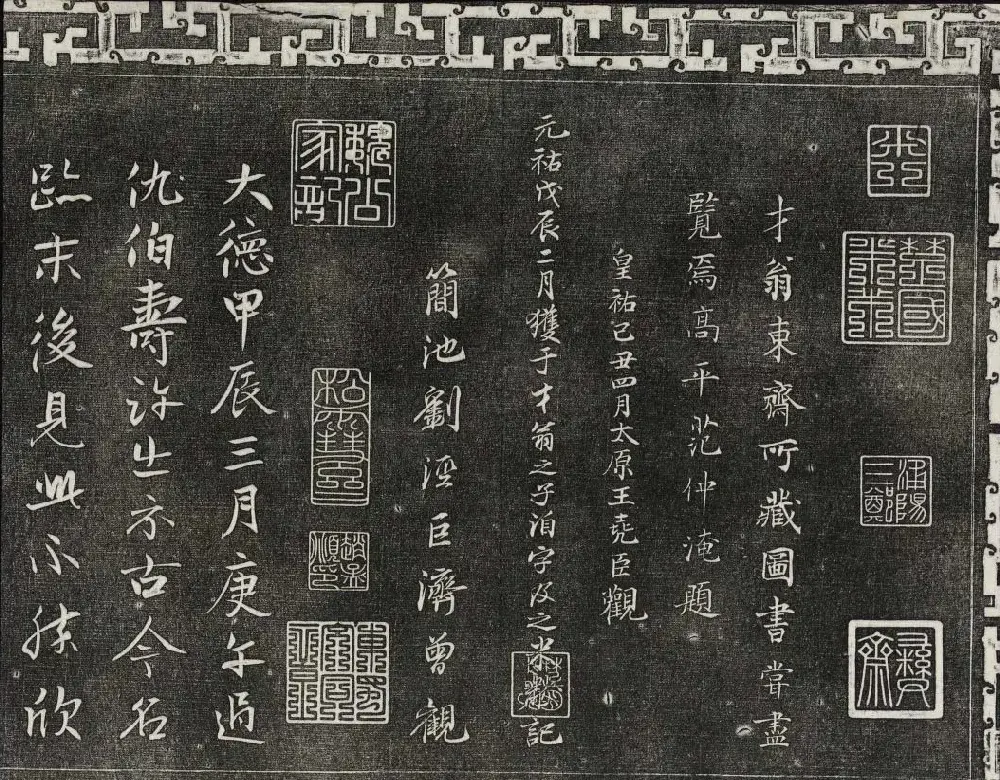 彝齋
楚國米芾
才翁東齋所藏圖書嘗盡
覽焉高平范仲淹題
皇祐己丑四月太原王堯臣觀
元祐戊辰二月獲于才翁之子洎字及之米黻記
簡池劉涇巨濟曾觀
大德甲辰三月庚午過
仇伯壽許出示古今名
跡末後見此不勝欣